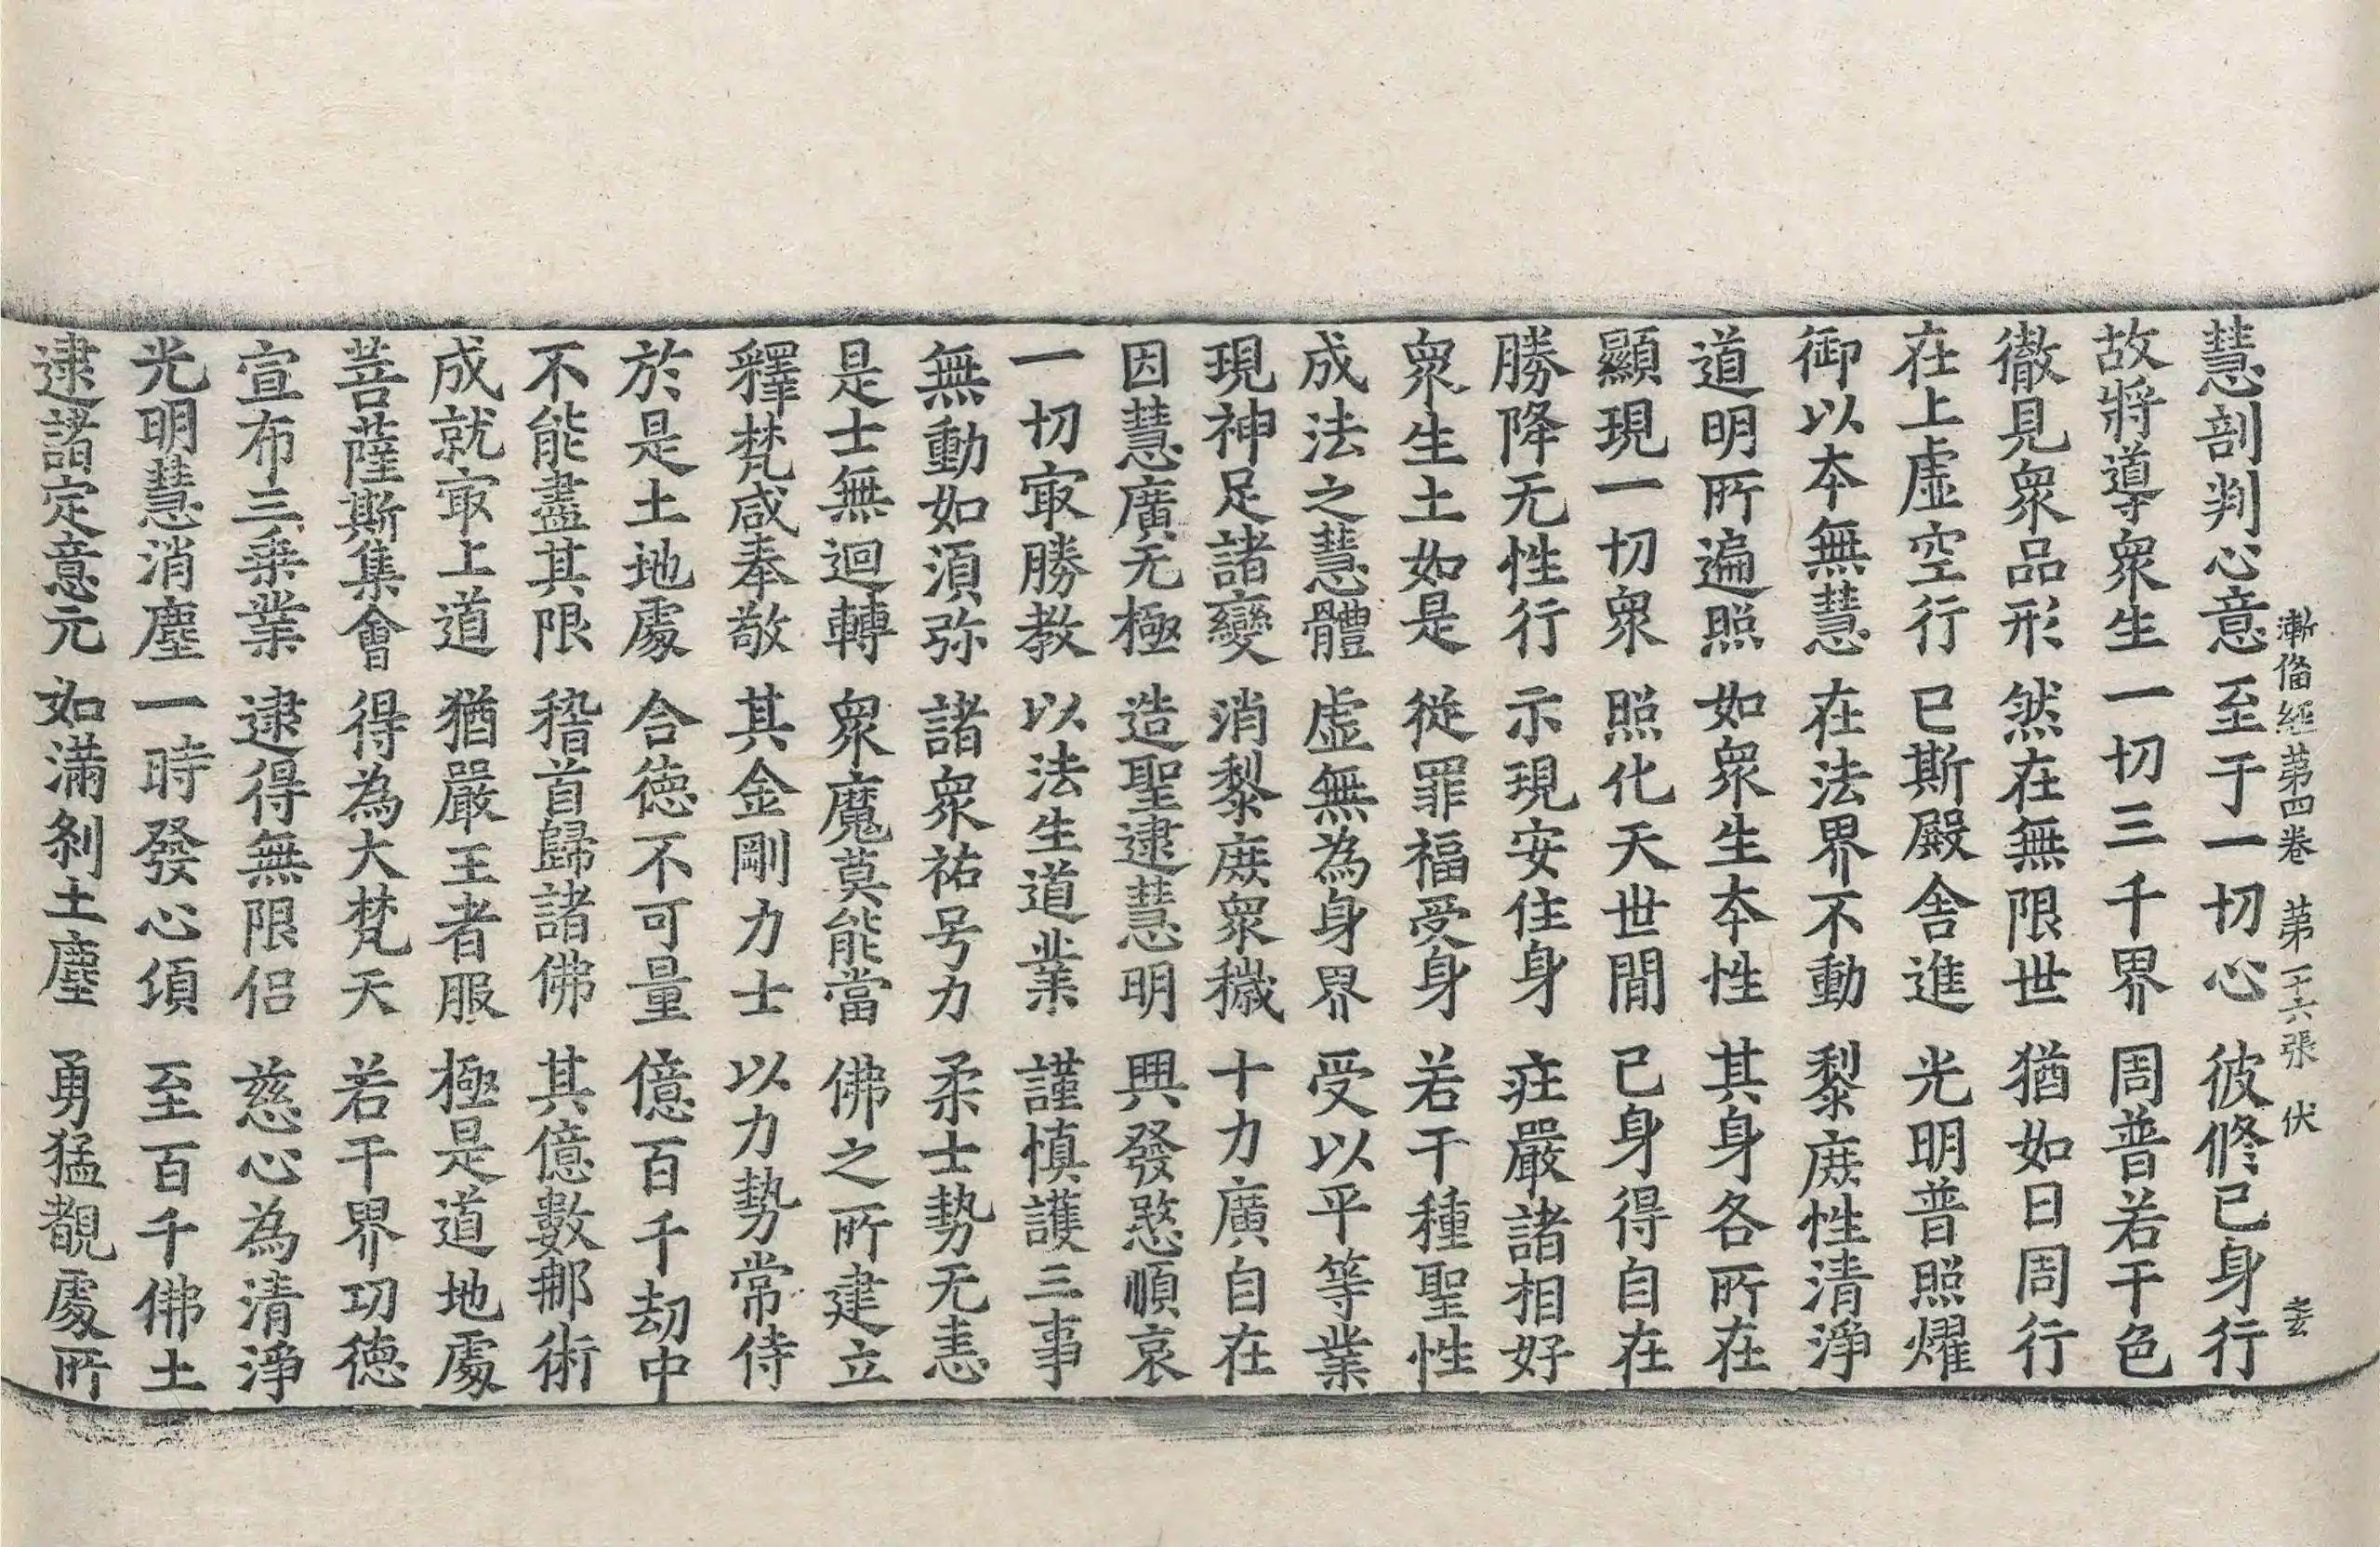 漸俻經第四卷 第二十六張 伏
慧剖判心意 至于一切心 彼修已身行
故將導衆生 一切三千界 周普若干色
徹見衆品形 然在無限世 猶如日周行
在上虛空行 已斯殿舍進 光明普照燿
御以本無慧 在法界不動 黎庶性清淨
道明所遍照 如衆生本性 其身各所在
顯現一切衆 照化天世間 已身得自在
勝降无性行 示現安住身 莊嚴諸相好
衆生土如是 從罪福受身 若干種聖性
成法之慧體 虛無為身界 受以平等業
現神足諸變 消黎庶衆穢 十力廣自在
因慧廣无極 造聖逮慧明 興發愍順哀
一切㝡勝教 以法生道業 謹慎護三事
無動如須弥 諸衆祐号力 柔士勢无恚
是士無迴轉 衆魔莫能當 佛之所建立
釋梵咸奉敬 其金剛力士 以力勢常侍
於是土地處 合德不可量 億百千劫中
不能盡其限 稽首歸諸佛 其億數那術
成就㝡上道 猶嚴王者服 極是道地處
菩薩斯集會 得為大梵天 若干界功德
宣布三乘業 逮得無限侶 慈心為清淨
光明慧消塵 一時發心須 至百千佛土
逮諸定意元 如滿剎土塵 勇猛覩處所